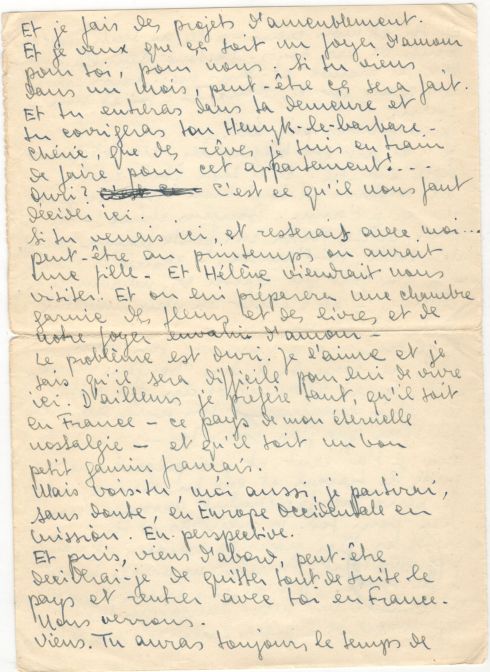 Et je fais des projets d'ameublement.
Et je veux que ça soit un foyer d'amour
pour toi, pour nous. Si tu viens
dans un mois, peut-être ça sera fait.
Et tu entreras dans ta demeure et
tu corrigeras ton Henryk-le-barbare -
Chérie, que des rêves je suis en train
de faire pour cet appartement!...
Ouri? C'est ce qu'il nous faut
décider ici.
Si tu venais ici, et resterais avec moi...
peut-être au printemps on aurait
une fille - Et Hélène viendrait nous
visiter. Et on lui préparera une chambre
garnie des fleurs et des livres et de
notre foyer envahi d'amour -
Le problème est Ouri. Je l'aime et je
sais qu'il sera difficile pour lui de vivre
ici. D'ailleurs je préfère tant, qu'il soit
en France - ce pays de mon éternelle
nostalgie - et qu'il soit un bon
petit gamin français.
Mais vois-tu, moi aussi, je partirai,
sans doute, en Europe occidentale en
mission. En perspective.
Et puis, viens d'abord, peut-être
déciderai-je de quitter tout de suite le
pays et rentrer avec toi en France.
Nous verrons.
Viens. Tu auras toujours le temps de